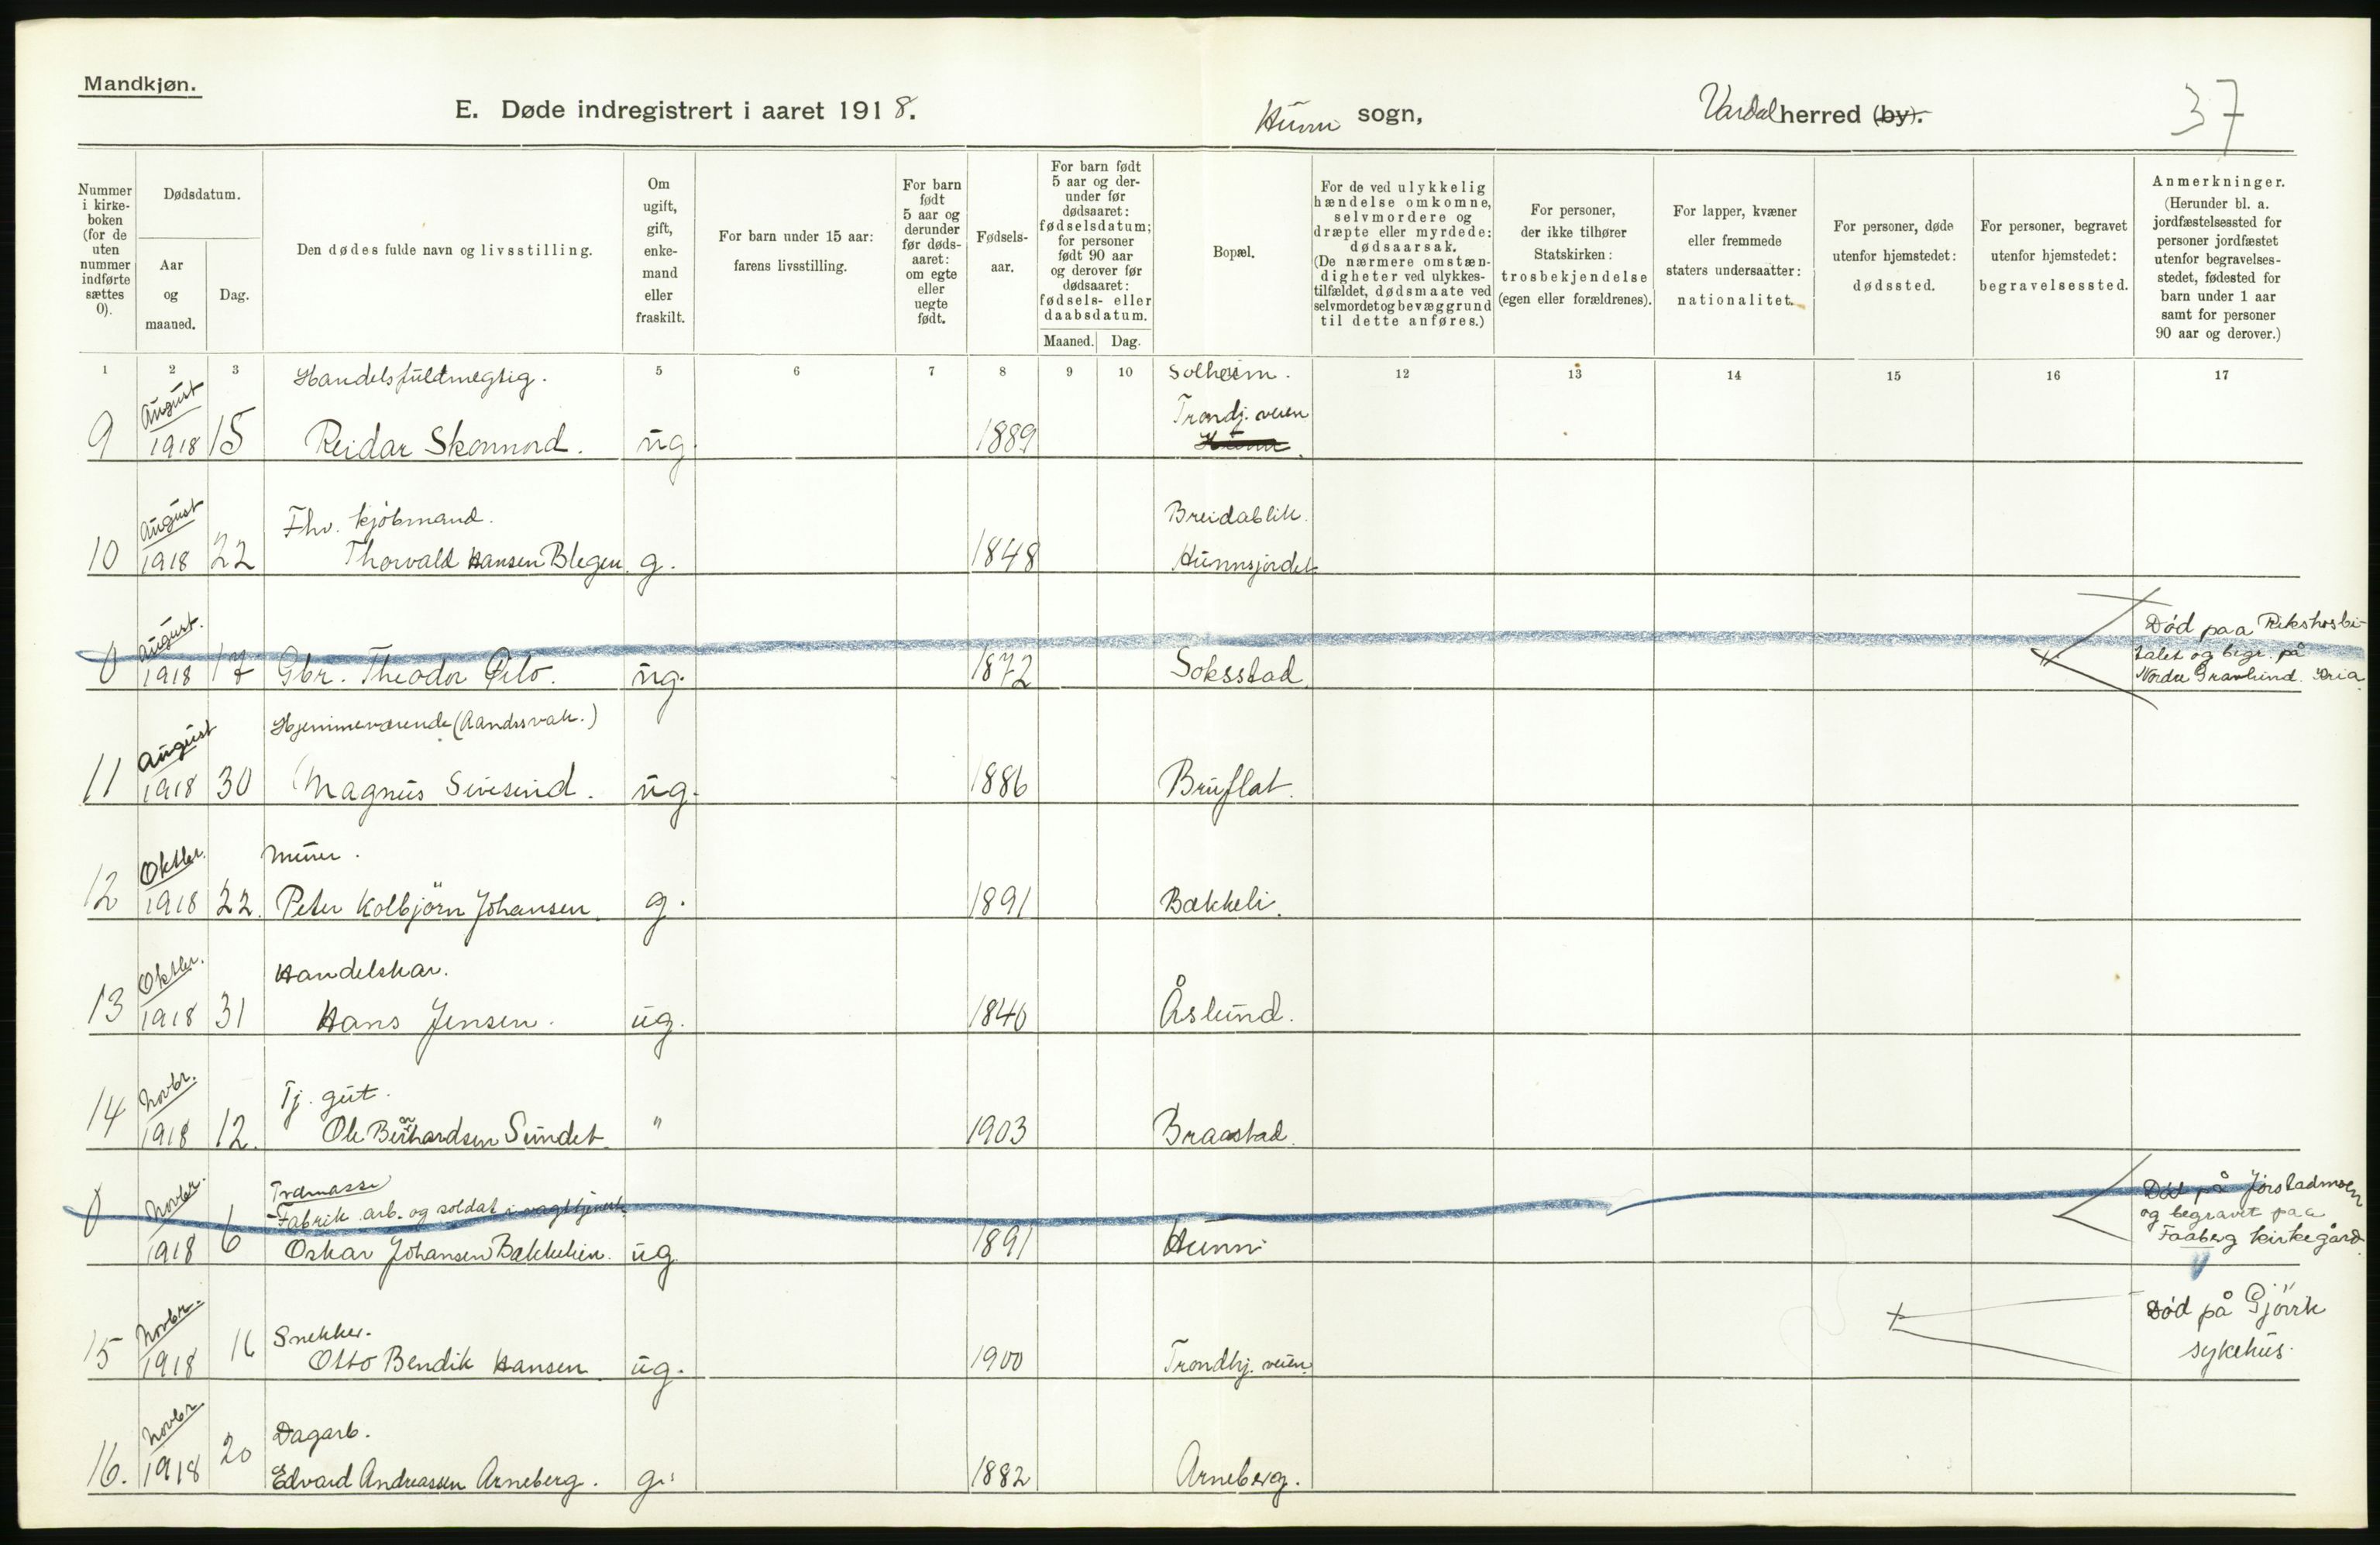 Mandkjøn.
E. Døde indregistrert i aaret 1918.
Hunn sogn,
Vardal herred (by).
37
Nummer i kirke-boken (for de uten nummer indførte sættes 0).
Dødsdatum.
Aar og maaned.
Dag.
Den dødes fulde navn og livsstilling.
Om ugift, gift, enke-mand eller fraskilt.
For barn under 15 aar: farens livsstilling.
For barn født 5 aar og derunder før døds-aaret: om egte eller uegte født.
Fødsels-aar.
For barn født 5 aar og der-under før dødsaaret: fødselsdatum; for personer født 90 aar og derover før dødsaaret: fødsels- eller daabsdatum.
Maaned.
Dag.
Bopæl.
For de ved ulykkelig hændelse omkomne, selvmordere og dræpte eller myrdede: dødsaarsak. (De nærmere omstæn-digheter ved ulykkes-tilfældet, dødsmaate ved selvmordet og bevæggrund til dette anføres.)
For personer, der ikke tilhører Statskirken: trosbekjendelse (egen eller forældrenes).
For lapper, kvæner eller fremmede staters undersaatter: nationalitet.
For personer, døde utenfor hjemstedet: dødssted.
For personer, begravet utenfor hjemstedet: begravelsessted.
Anmerkninger. (Herunder bl. a. jordfæstelsessted for personer jordfæstet utenfor begravelses-stedet, fødested for barn under 1 aar samt for personer 90 aar og derover.)
1 2 3 5 6 7 8 9 10 12 13 14 15 16 17
August Handelsfuldmegtig. Solheim.
Trondj. veien
9 1918 15 Reidar Skonnord. ug. 1889 Hunn.
August Fhv. kjöbmand. Breidablik.
10 1918 22 Thorvald Hansen Blegen g. 1848 Hunnsjordet
August. Død paa Rikshosbi-
talet og begr. på
0 1918 17 Gbr. Theodor ug. 1872 Soksstad Nordre Gravlund. Kria.
August Hjemmeværende (Aandssvak.)
11 1918 30 Magnus Sivesind. ug. 1886 Bruflat.
Oktbr. Murer.
12 1918 22. Peter Kolbjörn Johansen. g. 1891 Bækkeli.
Oktbr. Handelskar.
13 1918 31 Hans Jensen. ug. 1840 Åslund.
Novbr. Tj. gut.
14 1918 12. Ole Sundet " 1903 Braastad.
Novbr. Trdmasse Död på Jörstadmoen
0 6 Fabrik arb. og soldat i vagttjenest. og begravet paa
1918 Oskar Johansen Bækkelien. ug. 1891 Hunn Faaberg kirkegård.
Novbr. Snekker. Död på Gjövik
15 1918 16 Otto Bendik Hansen. ug. 1900 Trondhj. veien. sykehus.
Novbr. Dagarb.
16. 1918 20 Edvard Andreassen Arneberg. g. 1882 Arneberg.